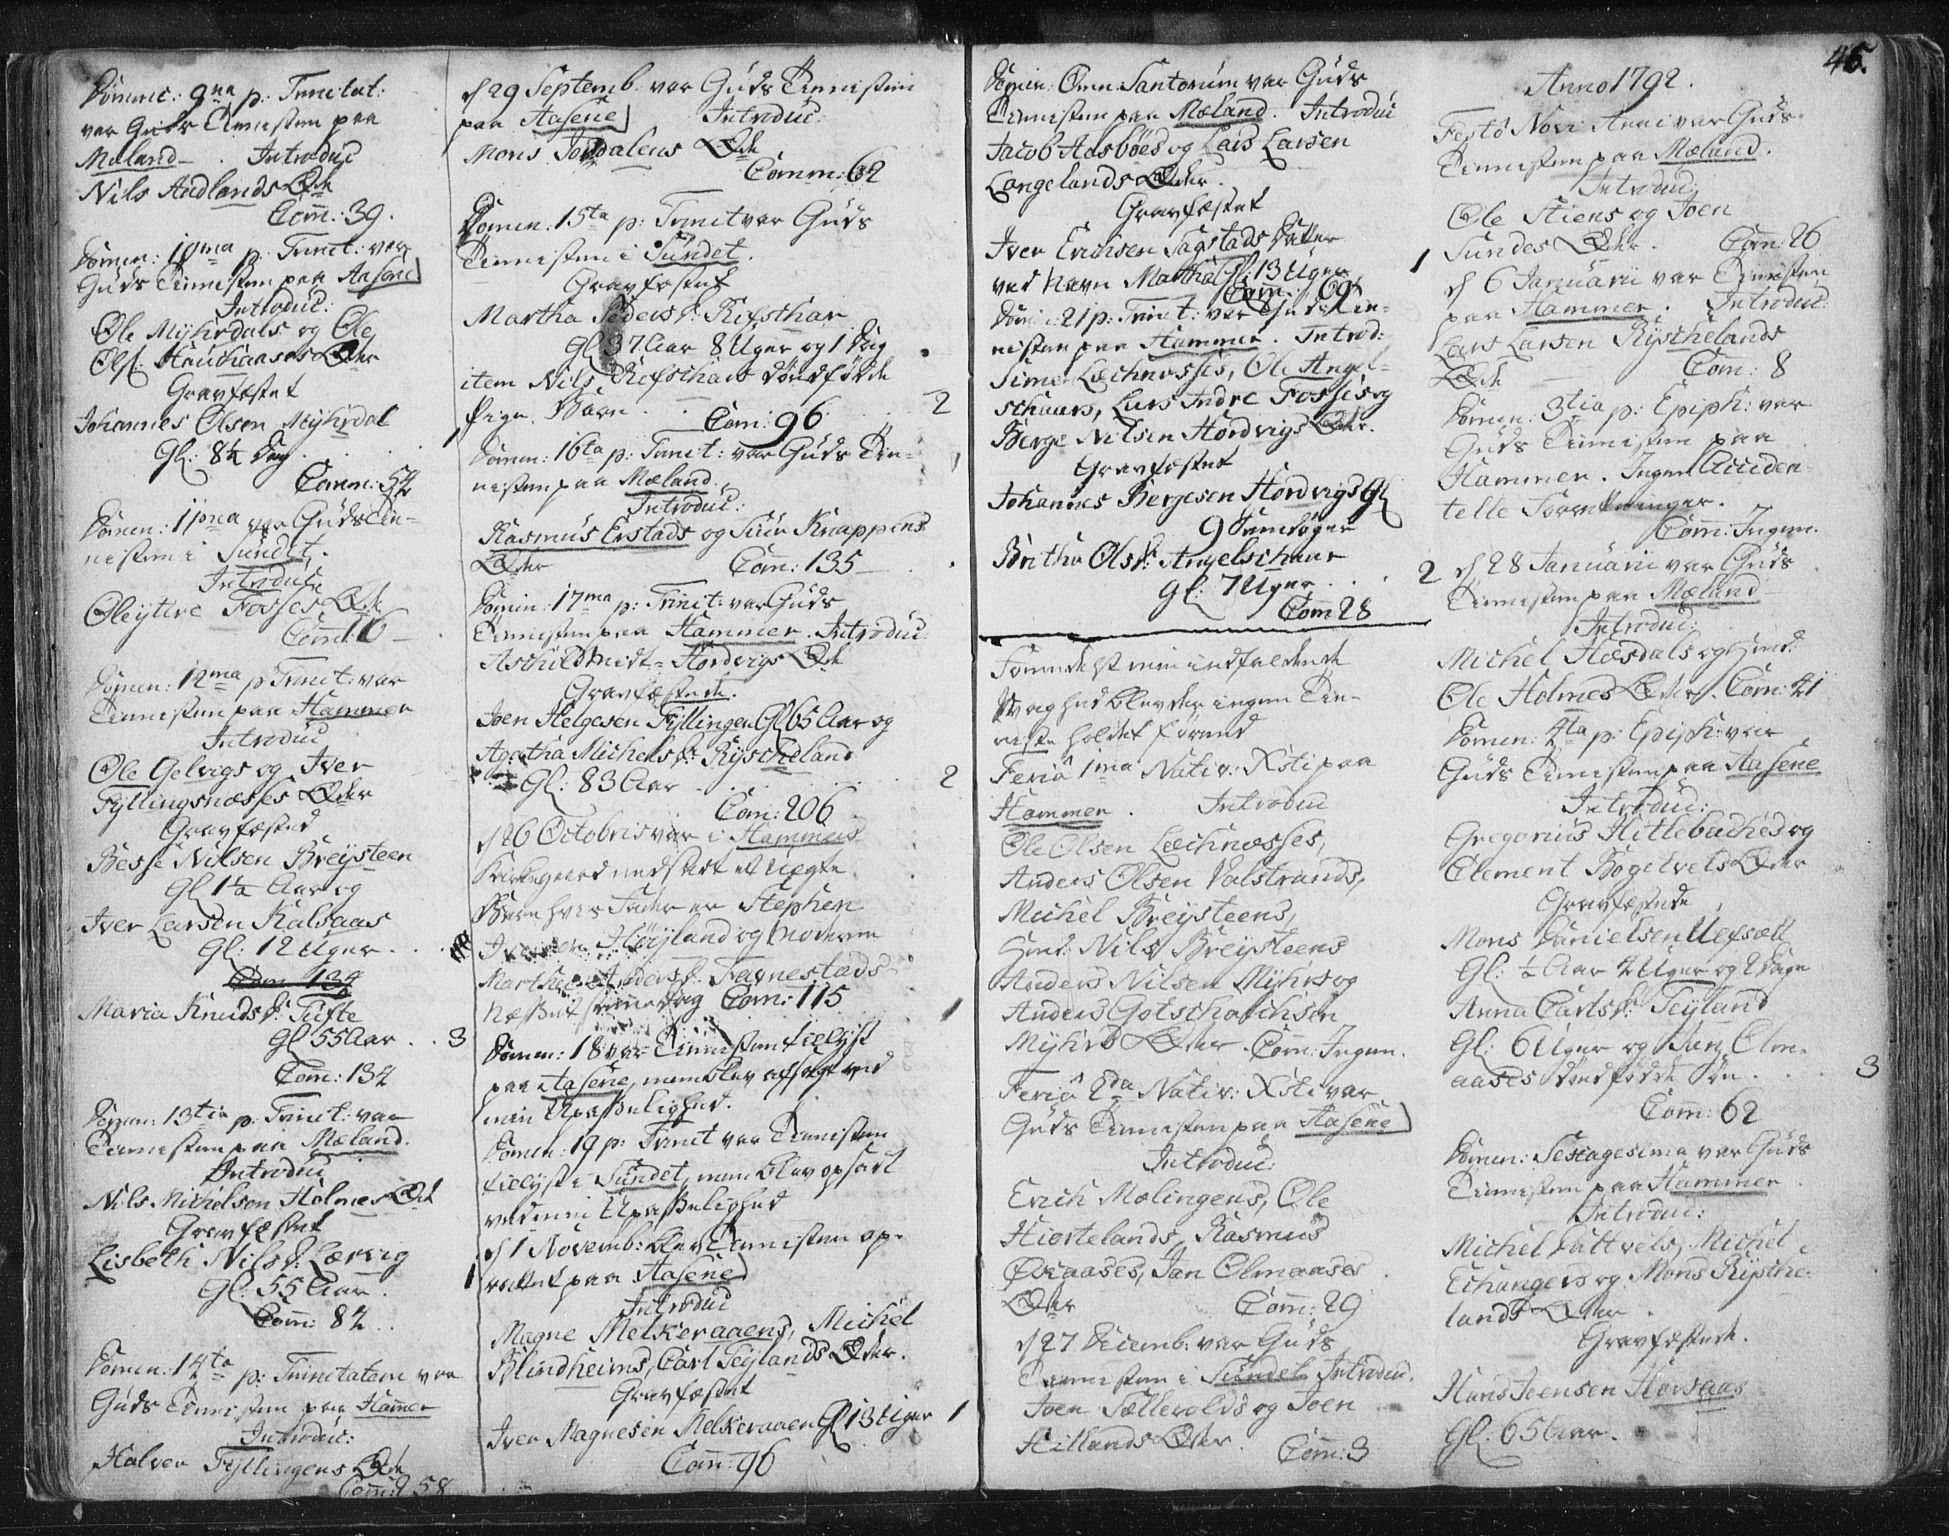 Domin: 9na p: Trinitat:
var Guds Tienisten paa
Mæland. Introduc
Nils Audlands Qde
Com: 39.
Domen: 10ma p: Trinit: var
Guds Tienisten paa Aasene
Introduc:
Ole Myhrdals og Ole
Ols: Qder
Gravfæstet
Johannes Olsen Myhrdal
Gl: 8½ Dag
Comm: 54
Domen: 11ma var Guds Tie-
nisten i Sundet.
Introduc
Ole ytre Fosses Qde
Com: 16
Domen: 12ma p Trinit: var
Tienisten paa Hammer
Introduc
Ole Gelvigs og Iver
Fyllingsnæsses Qder
Gravfæsted
Besse Nilsen Breysteen
Gl 1½ Aar og
Iver Larsen Kalsaas
Gl: 12 Uger
Com 134
Maria Knuds D: Tufte
Gl 55 Aar . . 3
Com: 134
Domen: 13tia p: Trinit: var
Tienisten paa Mæland.
Introduc
Nils Michelsen Holmes Qde
Gravfæstet
Lisbeth Nils D: Lærvig
Gl: 55 Aar. 1
Com: 84
Domen: 14ta p: Trinitatem var
Guds Tienisten paa Hamer
Introduc:
Halver Fyllingens Qde
Com: 258
d 29 Septemb. var Guds Tienisten
paa Aasene Introduc:
Mons Jordalens Qde
Comm: 62
Domen: 15ta p: Trinit var Guds
Tienisten i Sundet.
Gravfæstet
Martha Peders D: Refsthar
Gl 37 Aar 8 Uger og 1 Dag
item Nils Refschars dødfødde
Pige Barn. 2
Com: 96
Domen: 16ta p: Trinit: var Guds Tie-
nisten paa Mæland.
Introduc:
Rasmus Erstads og Knappens
Qder Com: 135
Domin: 17ma p: Trinit: var Guds
Tienisten paa Hammer. Introduc:
Hordvigs Qde
Gravfæstede.
Joen Helgesen Fyllingen Gl 65 Aar og
Agatha Michels D: Rystheland
Gl: 83 Aar 2
Com: 206
d 26 Octobris var i Hammers
Kirkegaard nedsadt et uægte
Barn hvis Fader er Stephen
Iversen Høyland og Moderen
Marthe Anders D: Farnestads-
Næsset Com: 115 1
Domen: 18 var Tienisten tillyst
paa Aasene, men blev afsagt ved
min Upasselighed.
Domen: 19 p: Trinit var Tienisten
tillyst i Sundet, men blev opsadt
ved min Upasselighed
d 1 Novemb: blev Tienisten op-
rettet paa Aasene
Introduc
Magne Melkeraaens, Michel
Blindheims, Carl Teylands Qder.
Gravfæstet
Iver Magnesen Melkeraaen Gl 13 Uger 1
Com: 96
Domin. Omn. Santorum var Guds
Tienisten paa Mæland. Introduc
Jacob Aasbøes og Lars Larsen
Langelands Qder.
Gravfæstet
Iver Erichsen Sagstads Datter
ved Navn Martha Gl: 13 Uger 1
Com: 69
Domin: 21 p: Trinit: var Guds Tie-
nisten paa Hammer. Introd:
Simen Lechnæsses, Ole Angel-
schaars, Lars Indre Fosses og
Berge Nilsen Hordvigs Qder.
Gravfæstet
Johannes Bergesen Hordvigs Gl
9
Britha Ols D: Angelschaar
Gl: 7 Uger. 2
Com 28
Formedelst min indfaldende
Svaghed blev der ingen Tie-
neste holdet førend
Feria 1ma Nativ: Xsti paa
Hammer. Introduc
Ole Olsen Lechnæsses,
Anders Olsen Valstrands,
Michel Breysteens,
Nils Breysteens
Anders Nilsen Myhrs og
Anders Gotschalchsen
Myhrs Qder. Com: Ingen.
Feria 2da Nativ: Xsti var
Guds Tienisten paa Aasene
Introduc:
Erich Mølingens, Ole
Hiortelands, Rasmus
Jan Olmaases
Qder Com: 29
d 27 Decemb: var Guds
Tienisten i Sundet. Introduc.
Joen og Joen
Hillands Qder. Com: 3
46.
Anno 1792.
Festo Novi Anni var Guds
Tienisten paa Mæland.
Introduc:
Ole Stiens og Joen
Sundes Qder. Com: 26
d 6 Januarii var Tienisten
paa Hammer. Introduc:
Lars Larsen Rysthelands
Qde Com: 8
Domen: 3tia p: Epiph: var
Guds Tienisten paa
Hammer. Ingen Acciden-
telle Forretninger.
Com: Ingen.
d 28 Januarii var Guds
Tienisten paa Mæland
Introduc:
Michel Høsdals og
Ole Holmes Qder. Com: 41
Domen: 4ta p: Epiph: var
Guds Tienisten paa Aasene
Introduc:
Gregorius Hitlebaches og
Clement Bøgetvets Qder
Gravfæstede
Mons Danielsen
Gl: ½ Aar 4 Uger og 2 Dage
Anna Carls D: Teyland
Gl: 6 Uger og Jan Olm-
aases dødfødde Søn. . . 3
Com: 62
Domen: Sexagesima var Guds
Tienisten paa Hammer.
Introduc:
Michel Michel
Echangers og Mons Rysthe-
lands Qder.
Gravfæstede.
Hans Joensen Horsaas
Gl: 65 Aar.